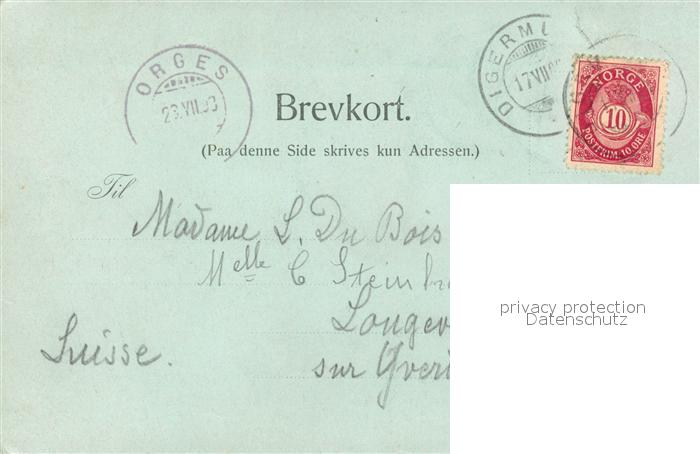 ORGES
23.VII.93
DIGERMU
17 VII
NORGE
10
POSTFRIM. 10 ØRE
Brevkort.
(Paa denne Side skrives kun Adressen.)
Til
Madame L. Du Bois
Melle C Stein
Longev
sur Yver
Suisse.
privacy protection
Datenschutz